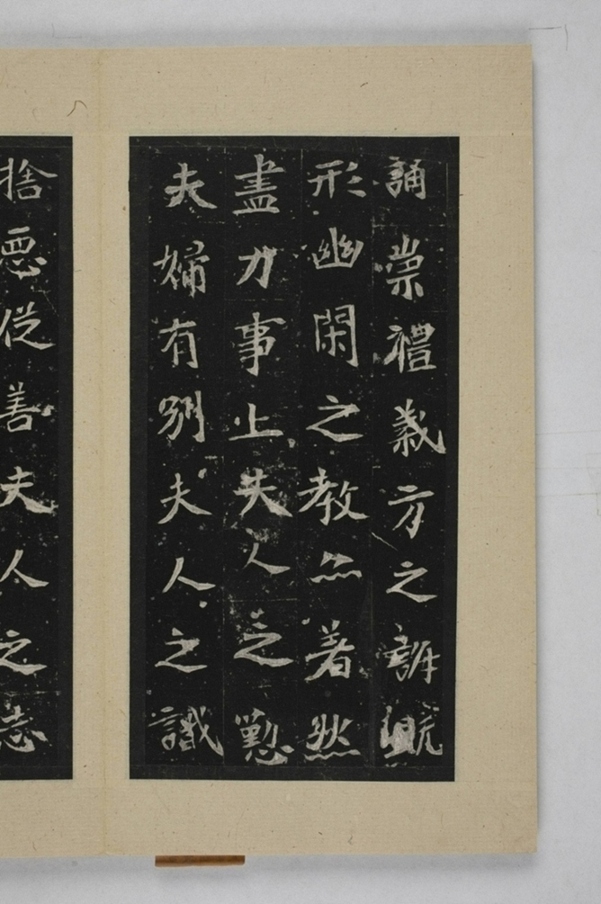 誦崇禮義方之訓既
形幽閑之教亦著然
盡力事上夫人之懃
夫婦有別夫人之識
捨惡從善夫人之志